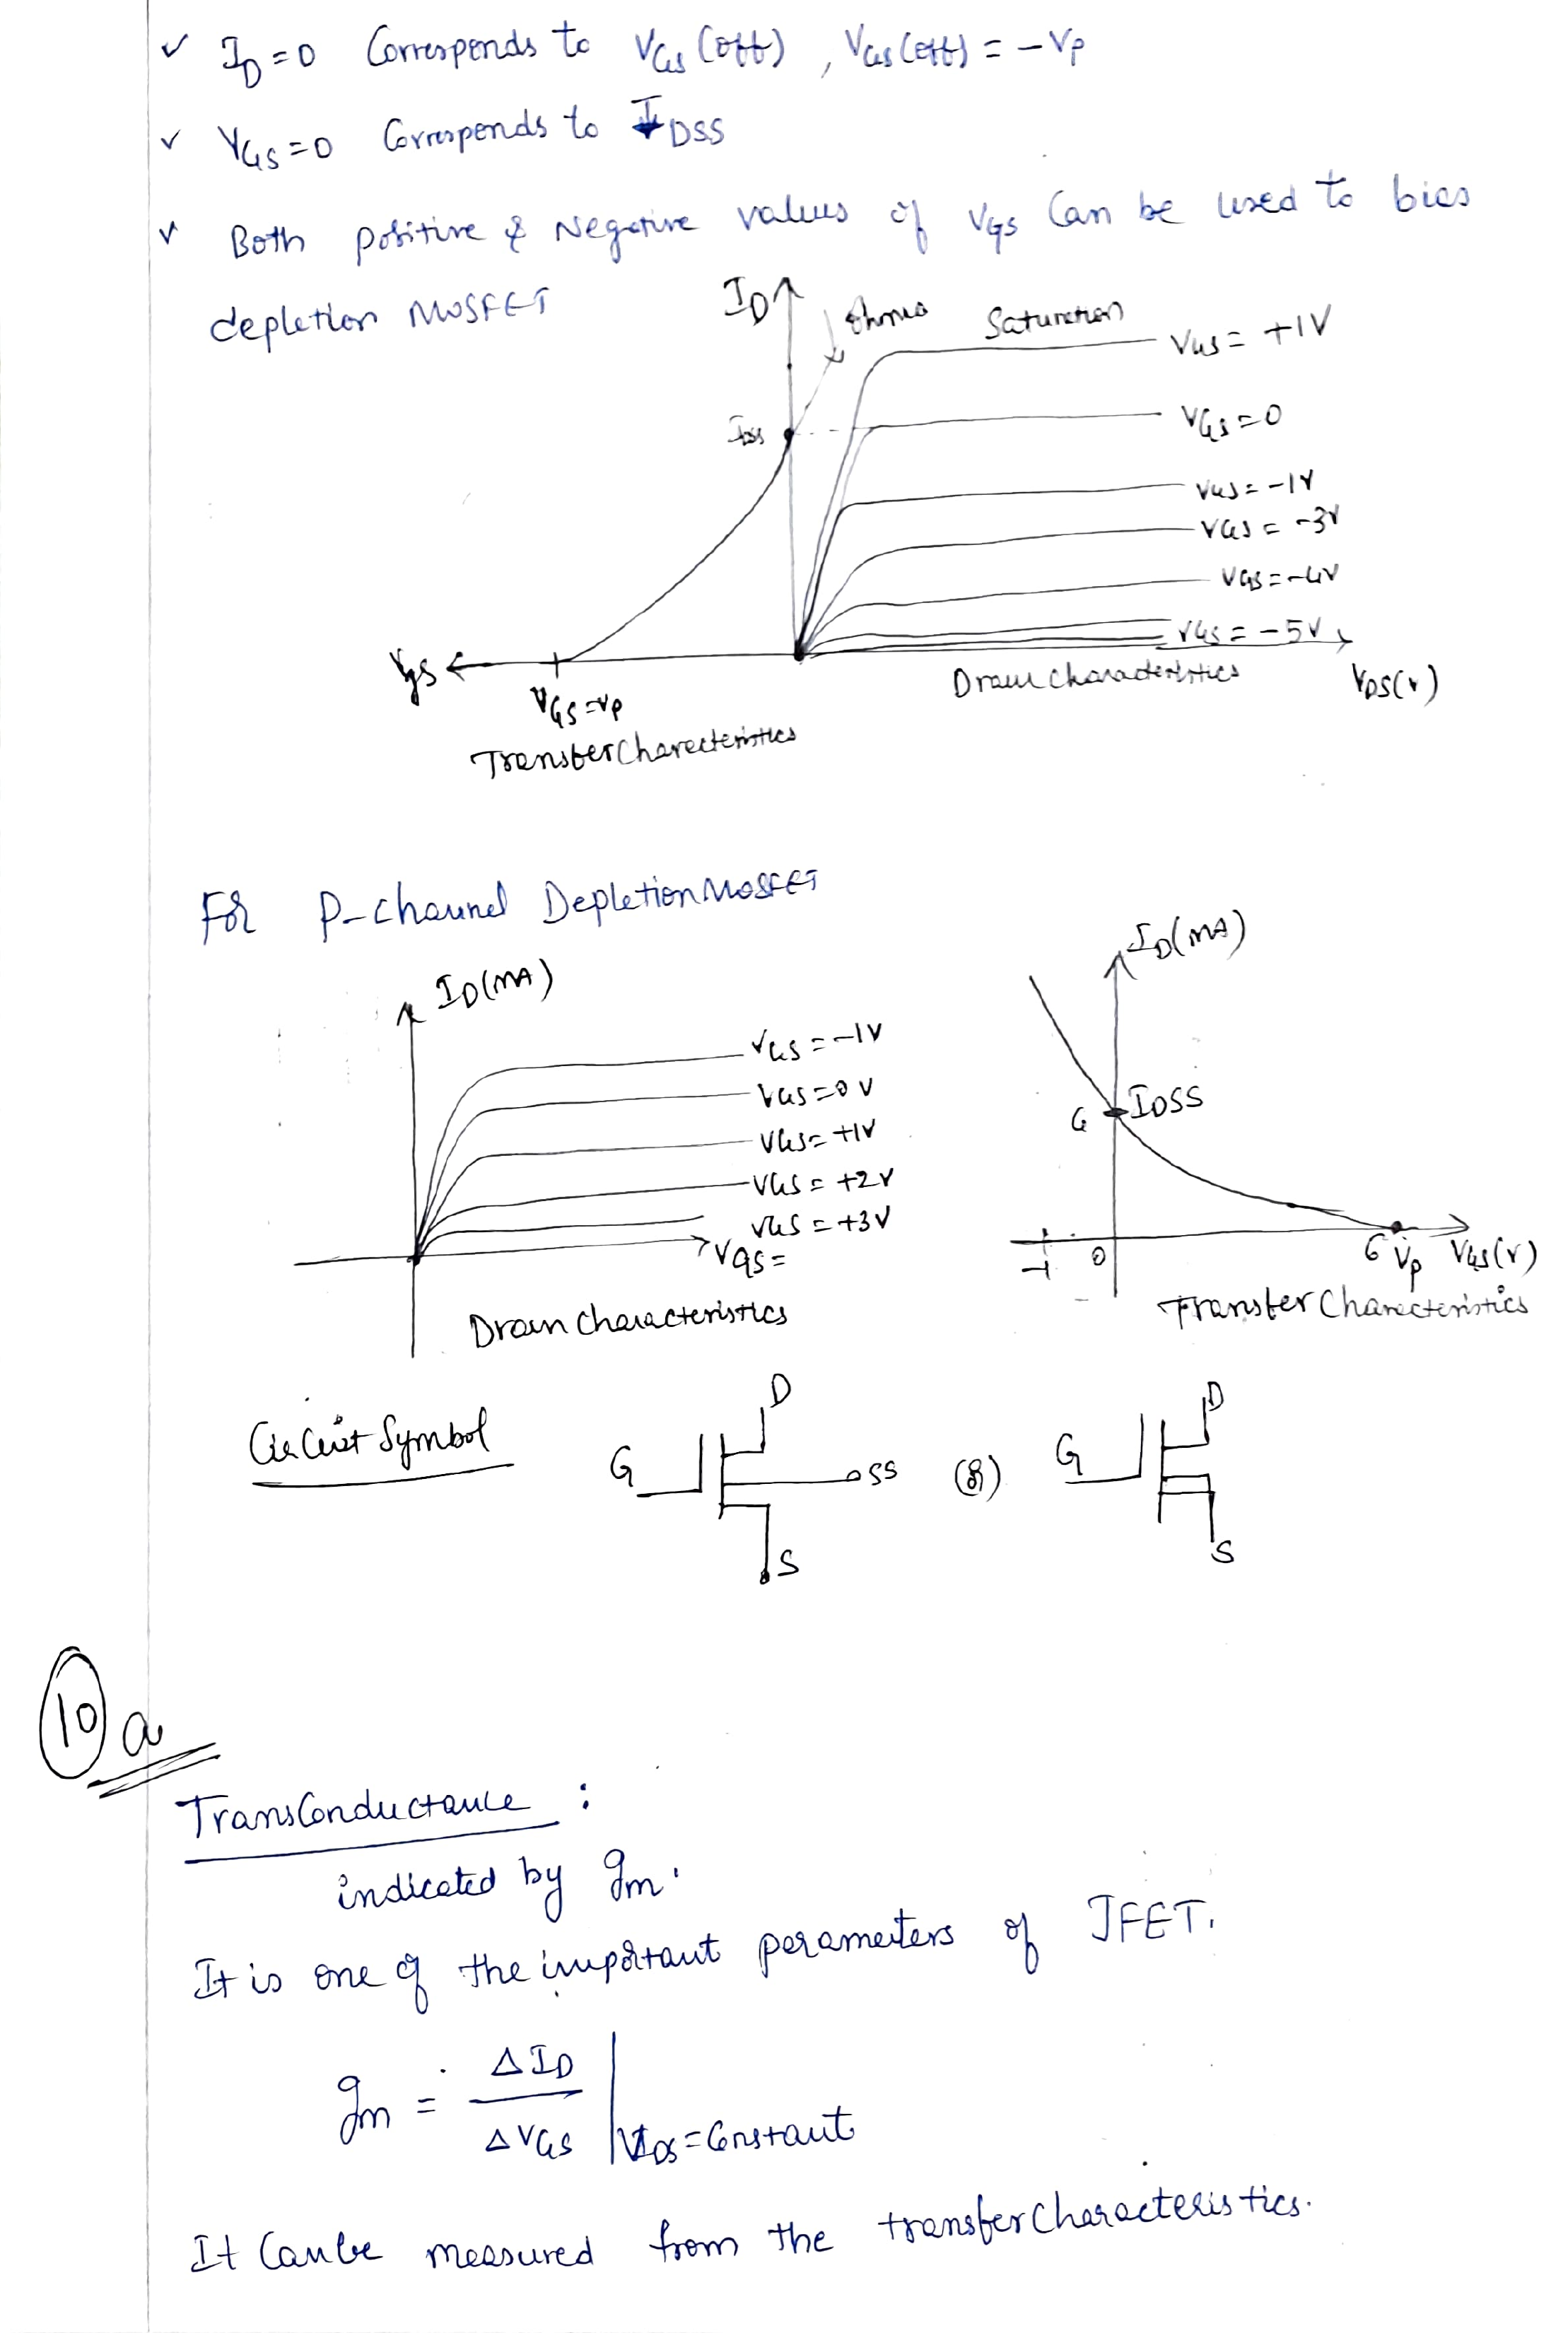 ✓ I_D = 0 Corresponds to V_GS (off) , V_GS (off) = -V_P
✓ V_GS = 0 Corresponds to I_DSS
✓ Both positive & Negative values of V_GS Can be used to bias
depletion MOSFET
I_D
Ohmic Saturation
V_GS = +1V
I_DSS
V_GS = 0
V_GS = -1V
V_GS = -3V
V_GS = -4V
V_GS = -5V
V_GS
V_GS = V_P
Drain characteristics
V_DS(v)
Transfer Charecteristics
For P-channel Depletion MOSFET
I_D(mA)
V_GS = -1V
V_GS = 0V
V_GS = +1V
V_GS = +2V
V_GS = +3V
V_GS =
Drain characteristics
I_D(mA)
6 I_DSS
-1 0 6 V_P V_GS(v)
Transfer Charecteristics
Circuit Symbol
G D SS S
(or)
G D S
10 a
TransConductance :
indicated by gm.
It is one of the important perameters of JFET.
gm = ΔI_D / ΔV_GS | V_DS = Constant
It Can be measured from the transfer characteristics.